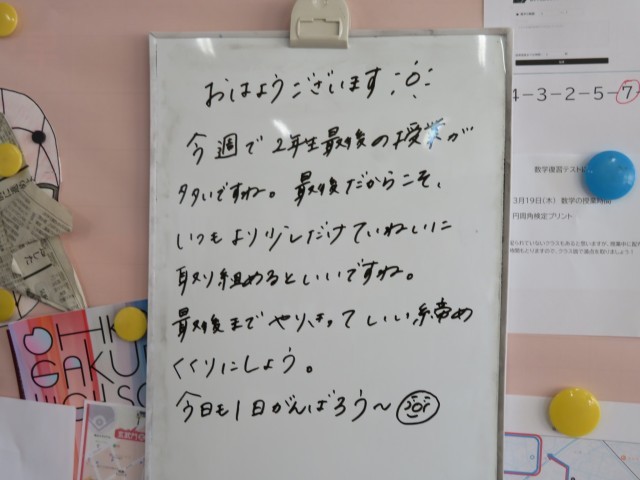 おはようございます
今週で2年生最後の授業が
多いですね。最後だからこそ、
いつもより少しだけていねいに
取り組めるといいですね。
最後までやりきっていい締め
くくりにしよう。
今日も1日がんばろう〜
4-3-2-5-7
数学復習テスト
3月19日(木) 数学の授業
円周角検定プリント
OHK
GAKU